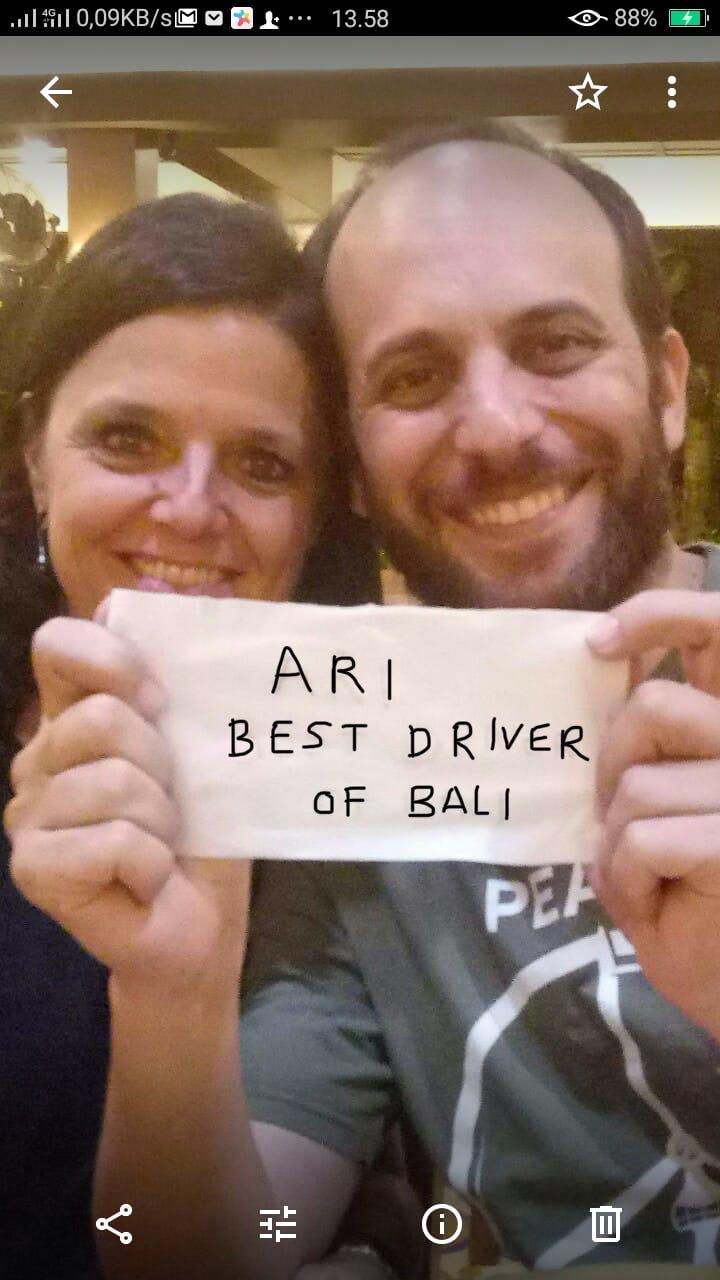 0,09KB/s 13.58 88%
4G
ARI
BEST DRIVER
OF BALI
PEA